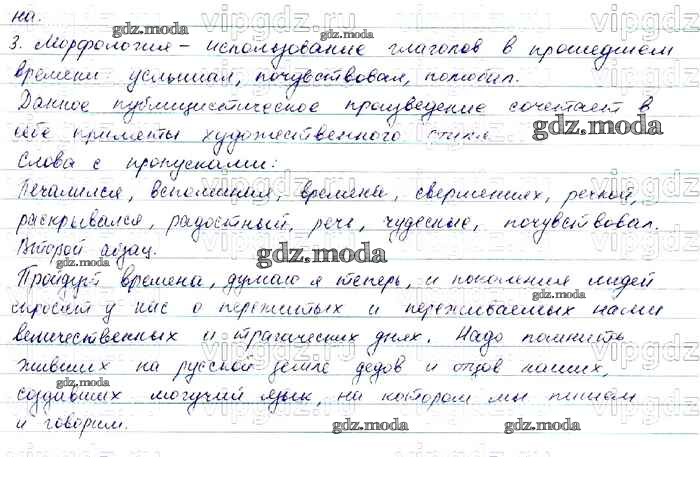 на.
3. Морфология - использование глаголов в прошедшем
времени услышал, почувствовал, полюбил.
Данное публицистическое произведение сочетает в
себе приметы художественного стиля.
Слова с пропусками:
Печалился, вспоминая, времена, свершениях, речкой,
раскрывался, радостный, речь, чудесные, почувствовал.
Второй абзац.
Пройдут времена, думаю я теперь, и поколения людей
спросят у нас о пережитых и переживаемых нами
величественных и трагических днях. Надо помнить
живших на русской земле дедов и отцов наших,
создавших могучий язык, на котором мы пишем
и говорим.